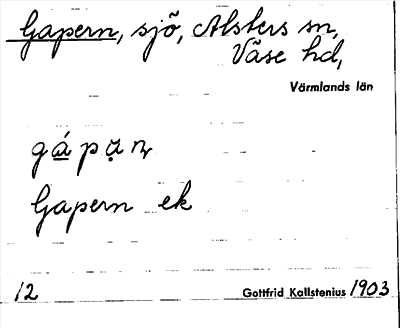 Gapern, sjö, Alsters sn,
Väse hd,
Värmlands län
gápạn
Gapern ek
12 Gottfrid Kallstenius 1903